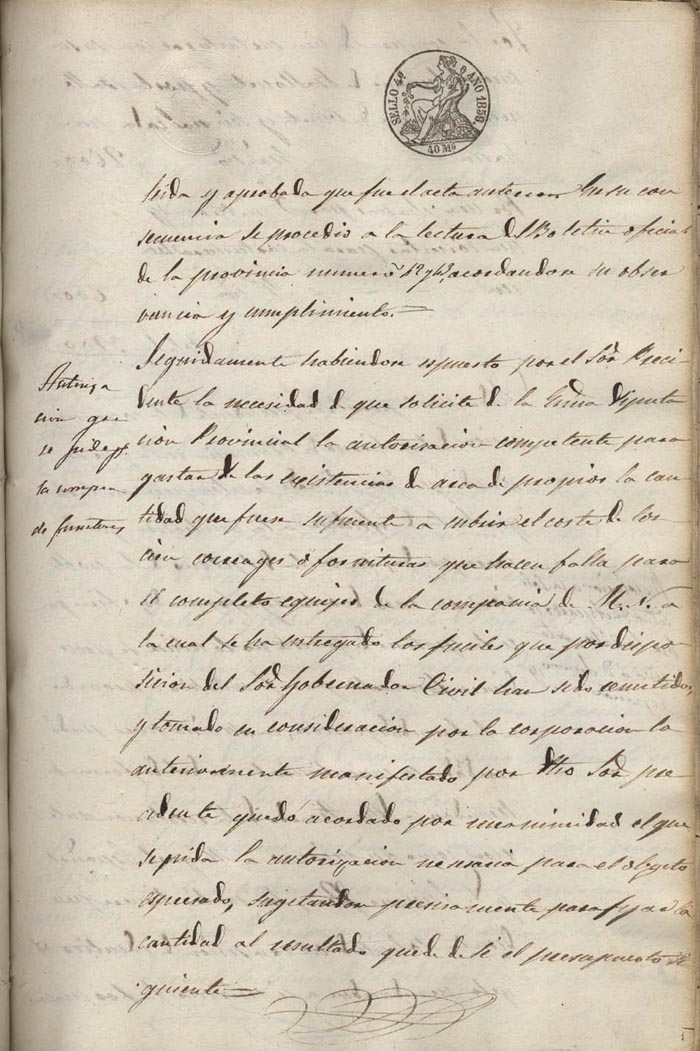 SELLO 4º AÑO 1856.
40 Ms
leida y aprobada que fue el acta anterior. En su con
secuencia se procedio a la lectura del Boletin oficial
de la provincia numero acordandose su obser
vancia y cumplimiento.=
Autoriza
cion que
se pide pª
la compra
de fornituras
Seguidamente habiendose espuesto por el Sor Preci
dente la necesidad de que solicite de la Exma Diputa
cion Provincial la autorizacion competente para
gastar de las existencias de arca de propios la can
tidad que fuese suficiente a cubrir el coste de los
cien correages o fornituras que hacen falta para
el completo equipo de la compañia de M. N. a
la cual se ha entregado los fuciles que por dispo
sicion del Sor Gobernador Civil han sido remitidos
y tomado en consideracion por la corporacion lo
anteriormente manifestado por dho Sor pre
cidente quedó acordado por unanimidad el que
se pida la autorizacion necesaria para el obgeto
espresado, sugetandose precisamente para fijar la
cantidad al resultado que de de si el presupuesto si
guiente=